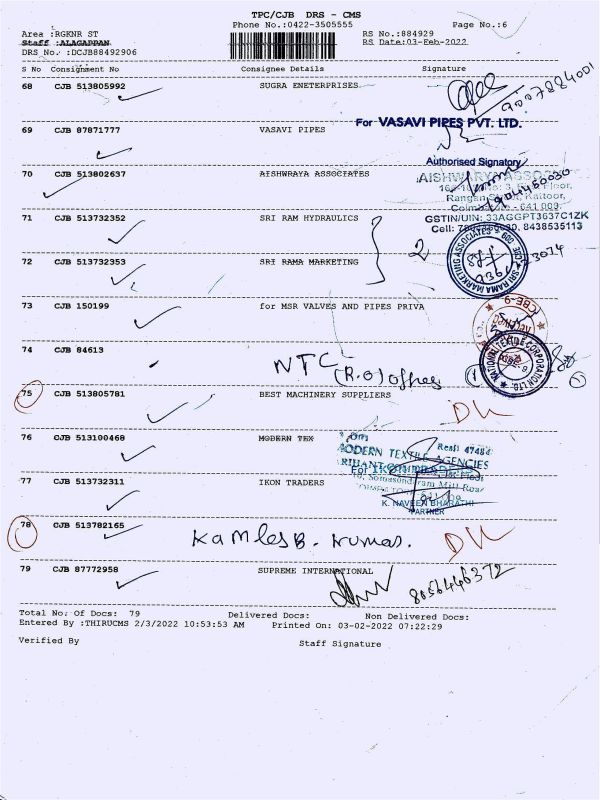 TPC/CJB DRS - CMS
Phone No.:0422-3505555 Page No.:6
Area :RGKNR ST RS No.:884929
Staff :ALAGAPPAN RS Date:03-Feb-2022
DRS No. :DCJB88492906
S No Consignment No Consignee Details Signature
68 CJB 513805992 SUGRA ENETERPRISES
9007884001
For VASAVI PIPES PVT. LTD.
69 CJB 87871777 VASAVI PIPES
Authorised Signatory
70 CJB 513802637 AISHWRAYA ASSOCIATES
AISHWARYA ASSOC
Floor,
Kattoor,
Coimbatore - 641 009.
71 CJB 513732352 SRI RAM HYDRAULICS
GSTIN/UIN: 33AGGPT3637C1ZK
8438535113
2
72 CJB 513732353 SRI RAMA MARKETING
SRI RAMA MARKETING ASSOCIATES
73 CJB 150199 for MSR VALVES AND PIPES PRIVA
CBE-9
74 CJB 84613
NTC
(R.O) offres
NATIONAL TEXTILE CORPORATION LTD.
75 CJB 513805781 BEST MACHINERY SUPPLIERS
DL
76 CJB 513100468 MODERN TEX
MODERN TEXTILE AGENCIES
For IKON TRADERS
Somasundaram Mill Road
77 CJB 513732311 IKON TRADERS
K. NAVEEN BHARATHI
PARTNER
78 CJB 513782165
KamlesB. Kumas. DL
79 CJB 87772958 SUPREME INTERNATIONAL
8056446372
Total No. Of Docs: 79 Delivered Docs: Non Delivered Docs:
Entered By :THIRUCMS 2/3/2022 10:53:53 AM Printed On: 03-02-2022 07:22:29
Verified By Staff Signature